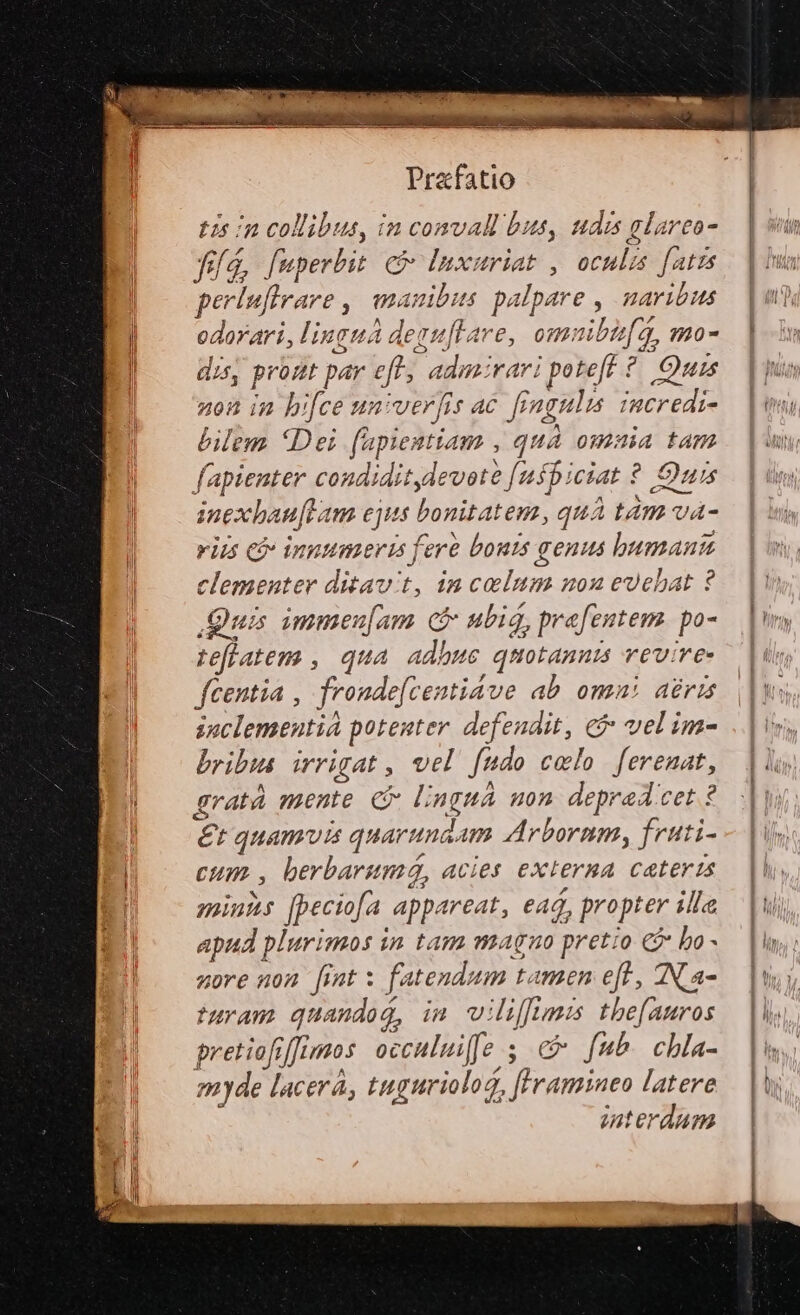 Præfatio
tis in collibus, in convallibus, udis glareo-
ſiſq́, ſuperbit & luxuriat, oculis ſatis
perluſtrare, manibus palpare, naribus
odorari, linguâ deguſtare, omnibuſq́, mo-
dis, prout par eſt, admirari poteſt? Quis
non in hiſce univerſis ac ſingulis incredi-
bilem Dei ſapientiam, quâ omnia tam
ſapienter condidit, devotè ſuſpiciat? Quis
inexhauſtam ejus bonitatem, quâ tàm va-
riis & innumeris ferè bonis genus humanũ
clementer ditavit, in cœlum non evehat?
Quis immenſam & ubiq́, præſentem po-
teſtatem, quâ adhuc quotannis revire-
ſcentia, frondeſcentiáve ab omni aëris
inclementiâ potenter defendit, & vel im-
bribus irrigat, vel ſudo cœlo ſerenat,
gratâ mente & linguâ non deprædicet?
Et quamvis quarundam Arborum, fruti-
cum, herbarumq́, acies externa cæteris
minùs ſpecioſa appareat, eaq́, propter illæ
apud plurimos in tam magno pretio & ho-
nore non ſint: fatendum tamen eſt, Na-
turam quandoq́, in viliſſimis theſauros
pretioſiſſimos occuluiſſe; & ſub chla-
myde lacerâ, tugurioloq́, ſtramineo latere
interdum